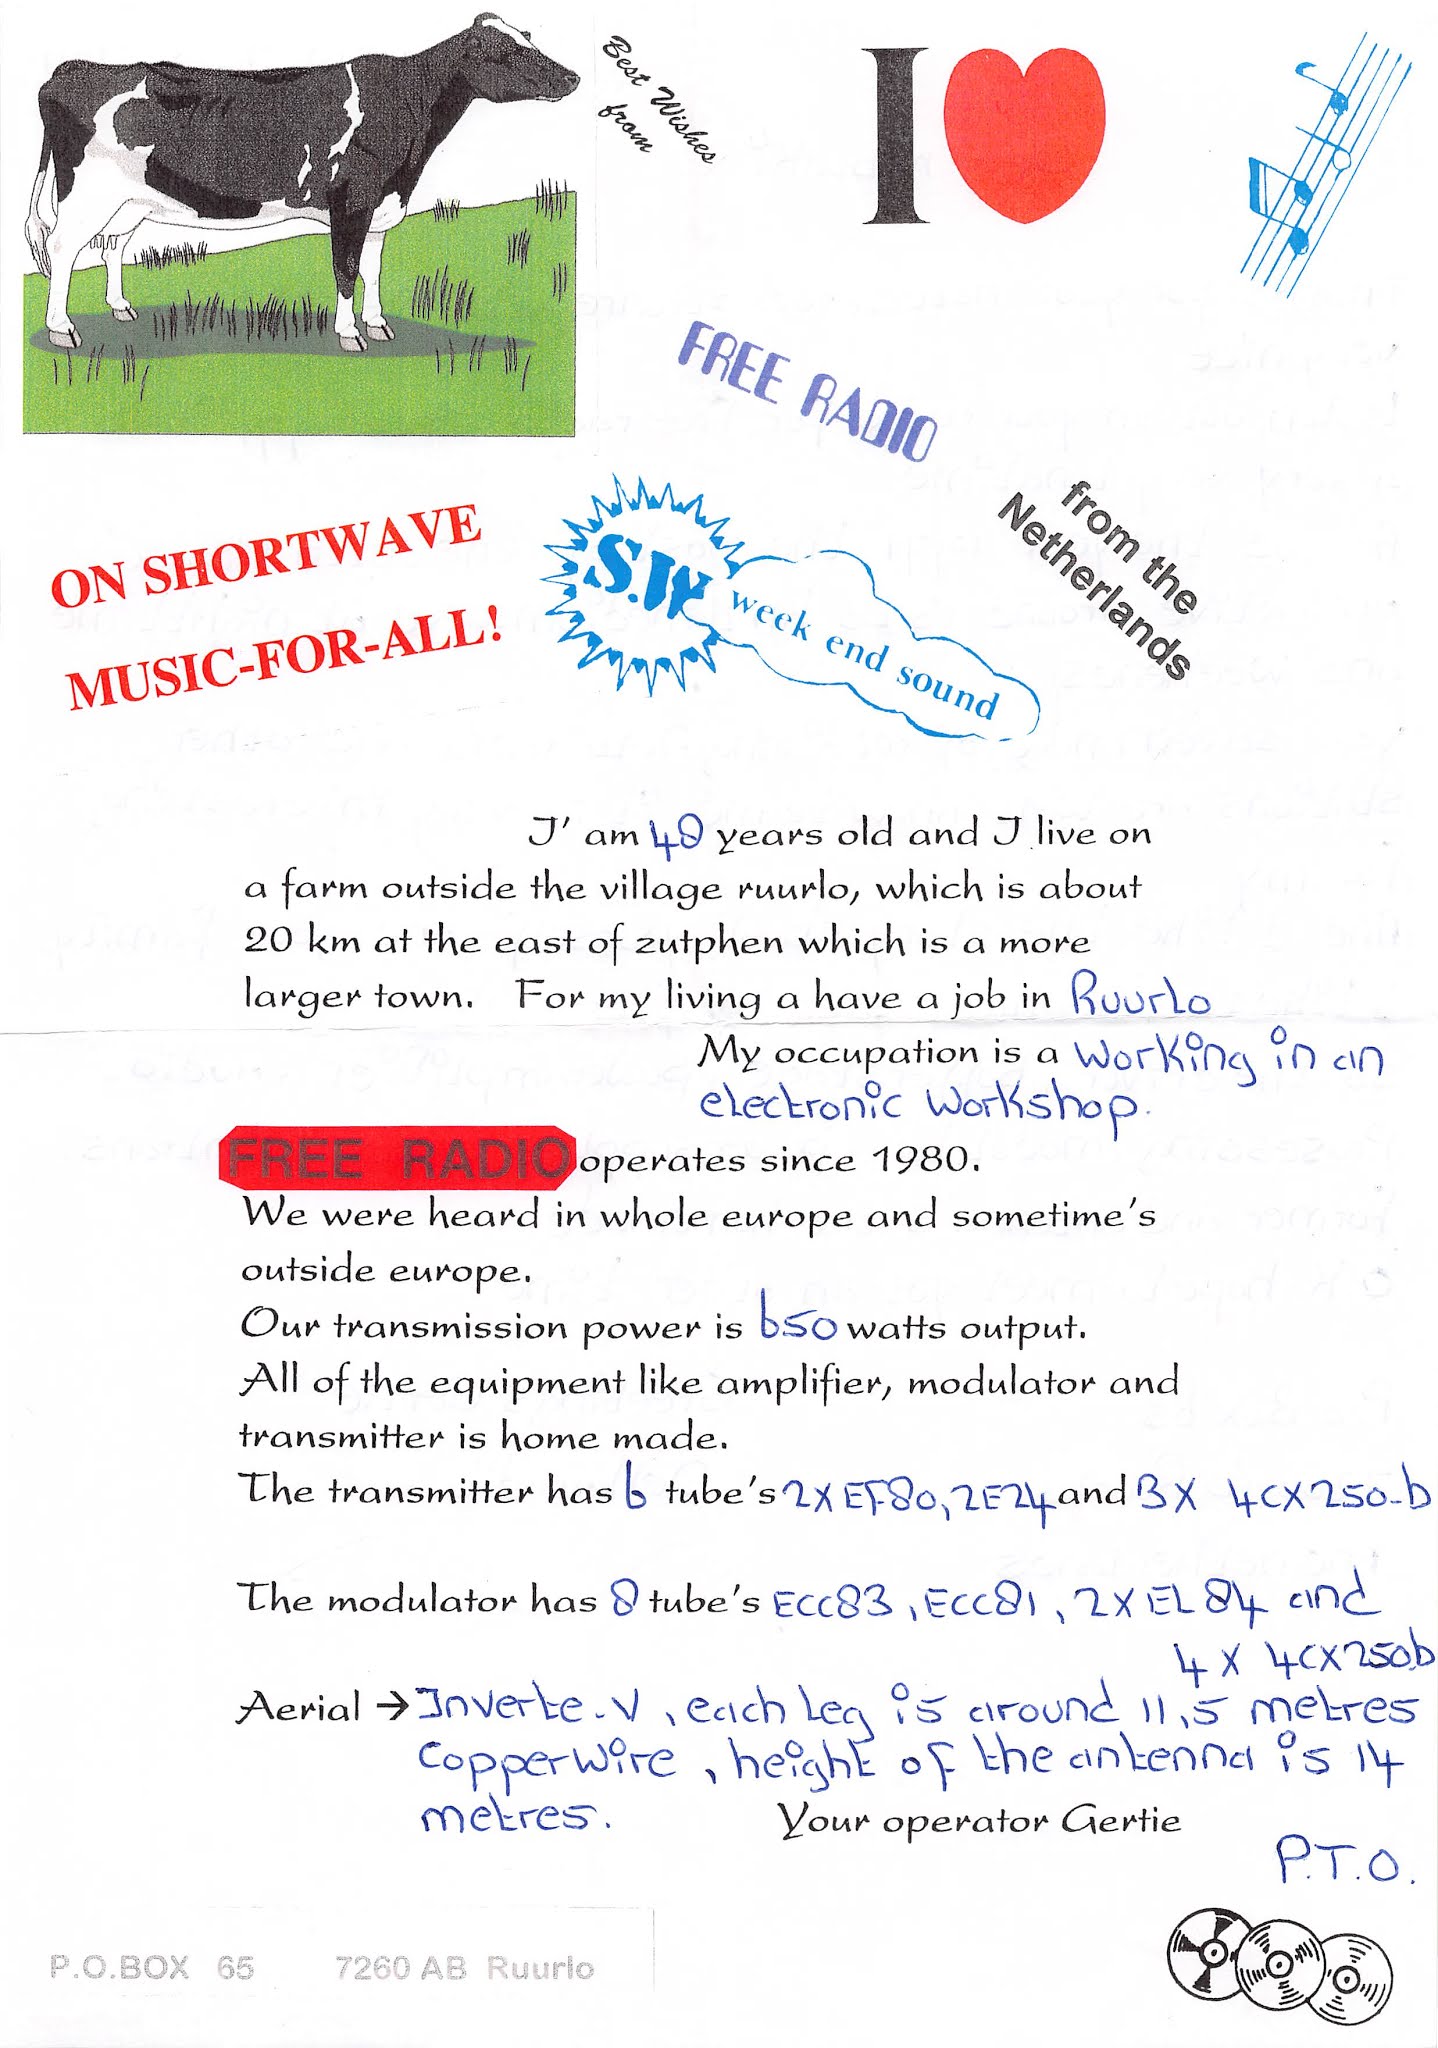 Best Wishes
from
I
FREE RADIO
from the
Netherlands
ON SHORTWAVE
MUSIC-FOR-ALL!
S.W
week end sound
I' am 48 years old and I live on
a farm outside the village ruurlo, which is about
20 km at the east of zutphen which is a more
larger town. For my living a have a job in Ruurlo
My occupation is a working in an
electronic workshop.
FREE RADIO operates since 1980.
We were heard in whole europe and sometime's
outside europe.
Our transmission power is 650 watts output.
All of the equipment like amplifier, modulator and
transmitter is home made.
The transmitter has 6 tube's 2X EF80, 2E24 and 3X 4CX250-b
The modulator has 8 tube's ECC83, ECC81, 2X EL84 and
4 X 4CX250b
Aerial → Inverte-V, each leg is around 11,5 metres
copperwire, height of the antenna is 14
metres. Your operator Gertie
P.T.O.
P.O.BOX 65 7260 AB Ruurlo